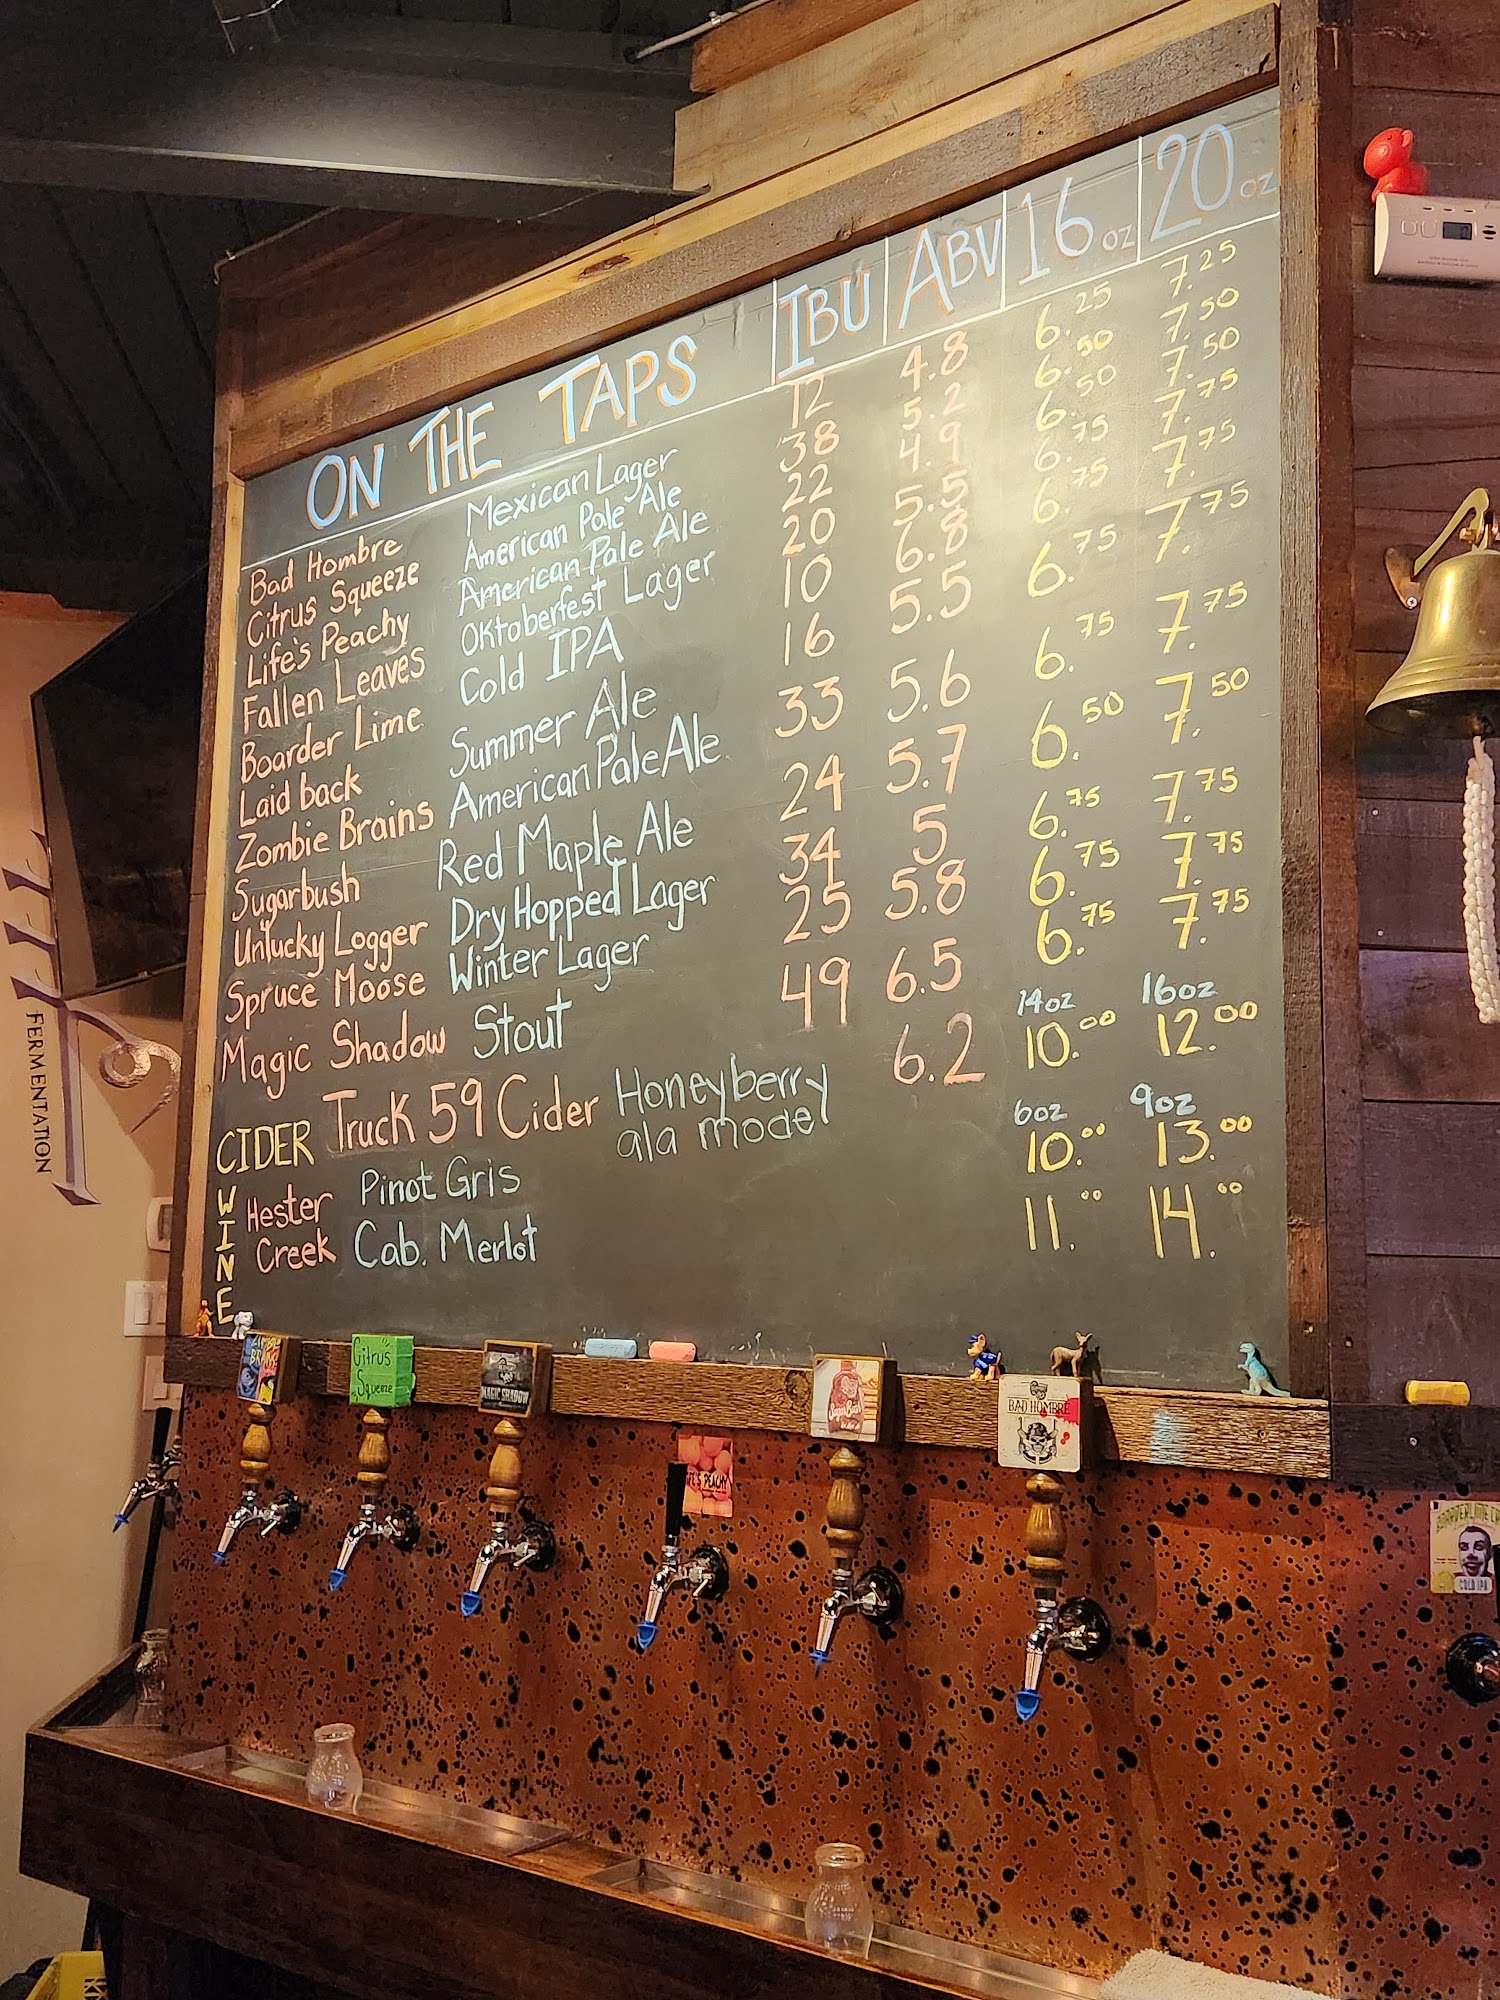 ON THE TAPS IBU ABV 16 oz 20 oz
Bad Hombre Mexican Lager 12 4.8 6.25 7.25
Citrus Squeeze American Pale Ale 38 5.2 6.50 7.50
Life's Peachy American Pale Ale 22 4.9 6.50 7.50
Fallen Leaves Oktoberfest Lager 20 5.5 6.75 7.75
Boarder Lime Cold IPA 10 6.8 6.75 7.75
Laid back Summer Ale 16 5.5 6.75 7.75
Zombie Brains American Pale Ale 33 5.6 6.75 7.75
Sugarbush Red Maple Ale 24 5.7 6.50 7.50
Unlucky Logger Dry Hopped Lager 34 5 6.75 7.75
Spruce Moose Winter Lager 25 5.8 6.75 7.75
Magic Shadow Stout 49 6.5 6.75 7.75
14oz 16oz
CIDER Truck 59 Cider Honeyberry ala mode 6.2 10.00 12.00
6oz 9oz
WINE Hester Creek Pinot Gris 10.00 13.00
Cab. Merlot 11.00 14.00
FERMENTATION
ZOMBIE BRAINS
Citrus Squeeze
MAGIC SHADOW
LIFE'S PEACHY
SugarBush
BAD HOMBRE
COLD IPA